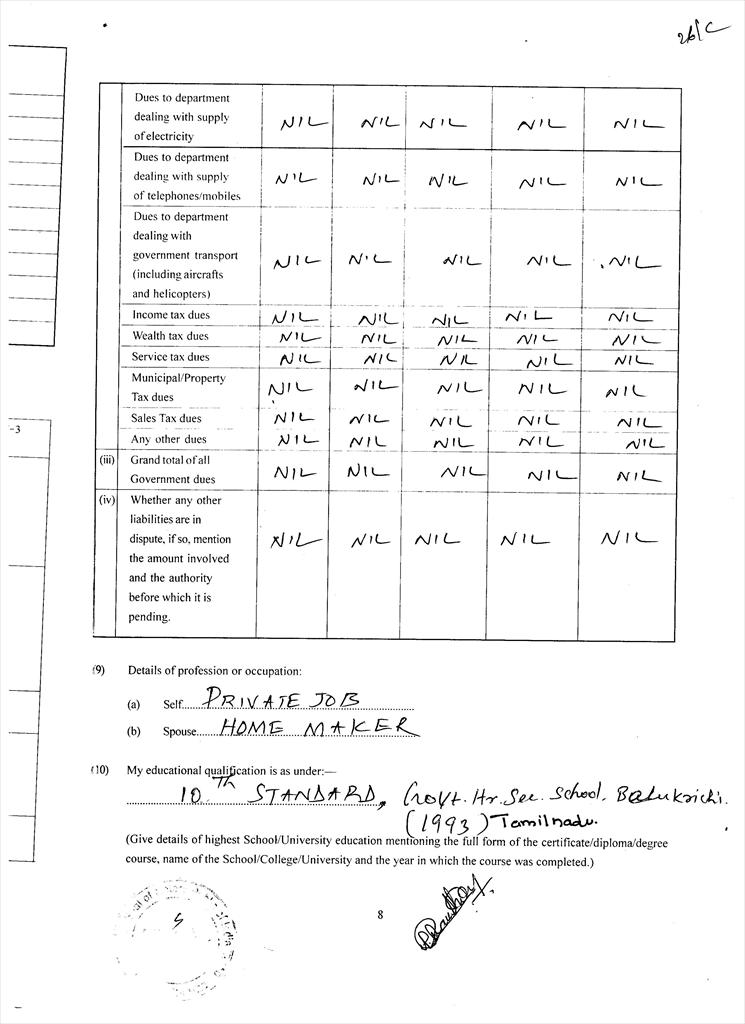 Dues to department
dealing with supply
of electricity
NIL NIL NIL NIL NIL
Dues to department
dealing with supply
of telephones/mobiles
NIL NIL NIL NIL NIL
Dues to department
dealing with
government transport
(including aircrafts
and helicopters)
NIL NIL NIL NIL NIL
Income tax dues NIL NIL NIL NIL NIL
Wealth tax dues NIL NIL NIL NIL NIL
Service tax dues NIL NIL NIL NIL NIL
Municipal/Property
Tax dues
NIL NIL NIL NIL NIL
Sales Tax dues NIL NIL NIL NIL NIL
Any other dues NIL NIL NIL NIL NIL
(iii) Grand total of all
Government dues
NIL NIL NIL NIL NIL
(iv) Whether any other
liabilities are in
dispute, if so, mention
the amount involved
and the authority
before which it is
pending.
NIL NIL NIL NIL NIL
-3
(9) Details of profession or occupation:
(a) Self PRIVATE JOB
(b) Spouse HOME MAKER
(10) My educational qualification is as under:—
10th STANDARD, Govt. Hr. Sec. School,
(1993) Tamilnadu.
(Give details of highest School/University education mentioning the full form of the certificate/diploma/degree
course, name of the School/College/University and the year in which the course was completed.)
8